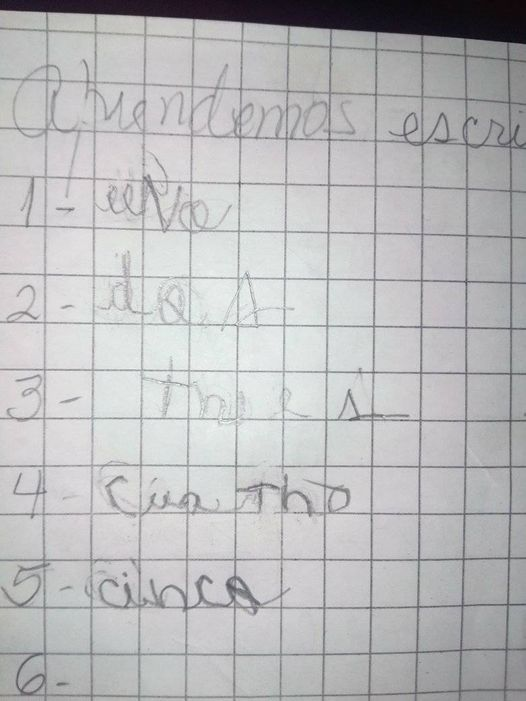 Aprendemos escri
1- uno
2- dos
3- tres
4- cuatro
5- cinco
6-